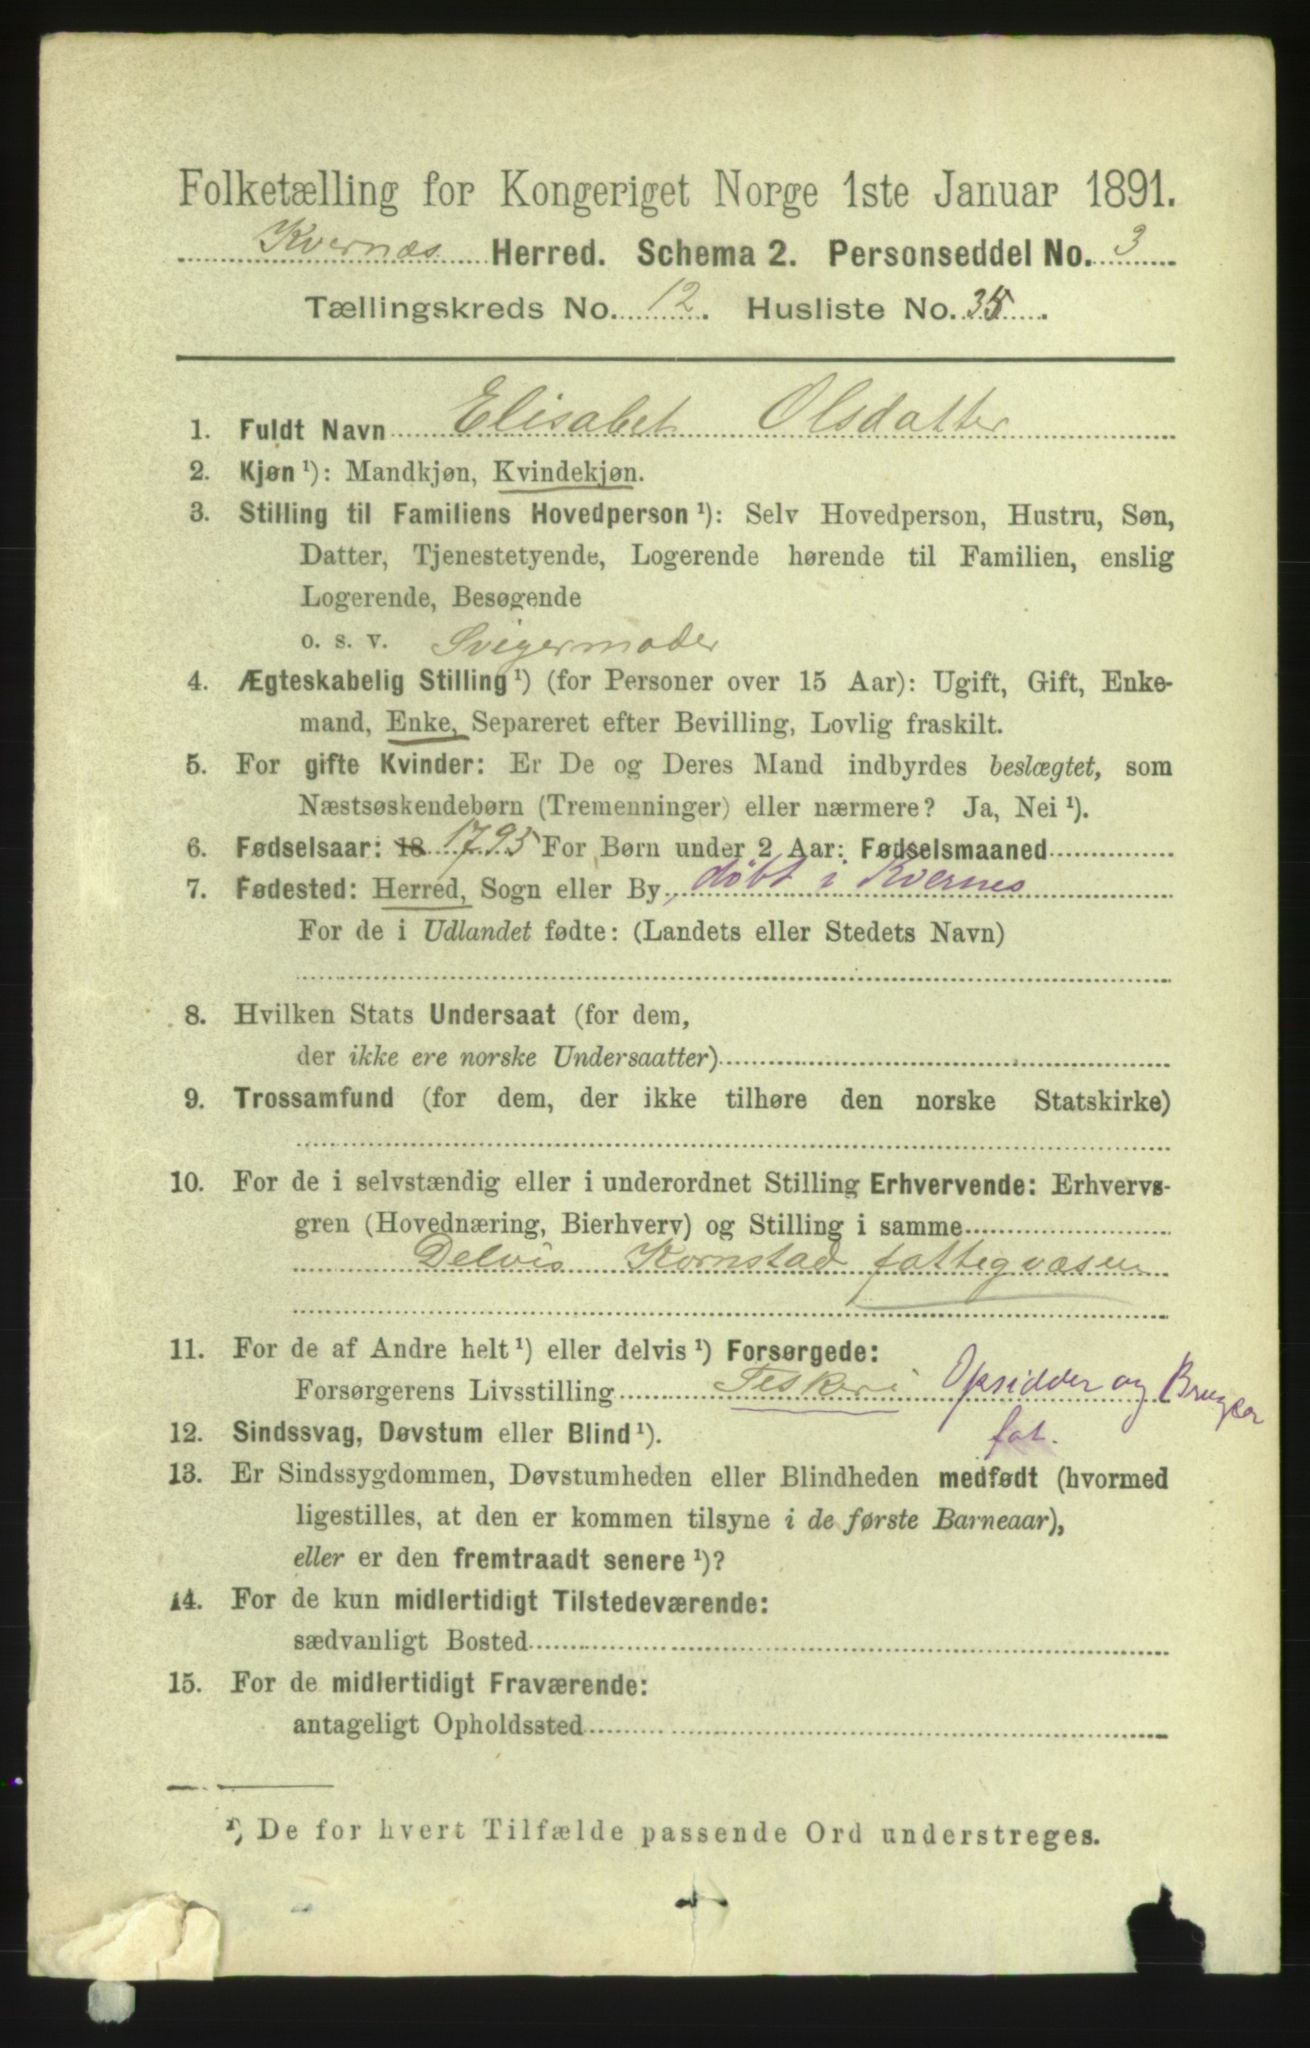 Folketælling for Kongeriget Norge 1ste Januar 1891.
Kvernæs Herred. Schema 2. Personseddel No. 3
Tællingskreds No. 12. Husliste No. 35.
1. Fuldt Navn Elisabet Olsdatter
2. Kjøn ¹): Mandkjøn, Kvindekjøn.
3. Stilling til Familiens Hovedperson ¹): Selv Hovedperson, Hustru, Søn,
Datter, Tjenestetyende, Logerende hørende til Familien, enslig
Logerende, Besøgende
o. s. v. Svigermoder
4. Ægteskabelig Stilling ¹) (for Personer over 15 Aar): Ugift, Gift, Enke-
mand, Enke, Separeret efter Bevilling, Lovlig fraskilt.
5. For gifte Kvinder: Er De og Deres Mand indbyrdes beslægtet, som
Næstsøskendebørn (Tremenninger) eller nærmere? Ja, Nei ¹).
6. Fødselsaar: 18 1795 For Børn under 2 Aar: Fødselsmaaned
7. Fødested: Herred, Sogn eller By, døbt i Kvernes
For de i Udlandet fødte: (Landets eller Stedets Navn)
8. Hvilken Stats Undersaat (for dem,
der ikke ere norske Undersaatter)
9. Trossamfund (for dem, der ikke tilhøre den norske Statskirke)
10. For de i selvstændig eller i underordnet Stilling Erhvervende: Erhvervs-
gren (Hovednæring, Bierhverv) og Stilling i samme
Delvis Kornstad fattigvæsen
11. For de af Andre helt ¹) eller delvis ¹) Forsørgede:
Forsørgerens Livsstilling Fiskeri Opsidder og Bruger
fat.
12. Sindssvag, Døvstum eller Blind ¹).
13. Er Sindssygdommen, Døvstumheden eller Blindheden medfødt (hvormed
ligestilles, at den er kommen tilsyne i de første Barneaar),
eller er den fremtraadt senere ¹)?
14. For de kun midlertidigt Tilstedeværende:
sædvanligt Bosted
15. For de midlertidigt Fraværende:
antageligt Opholdssted
¹) De for hvert Tilfælde passende Ord understreges.